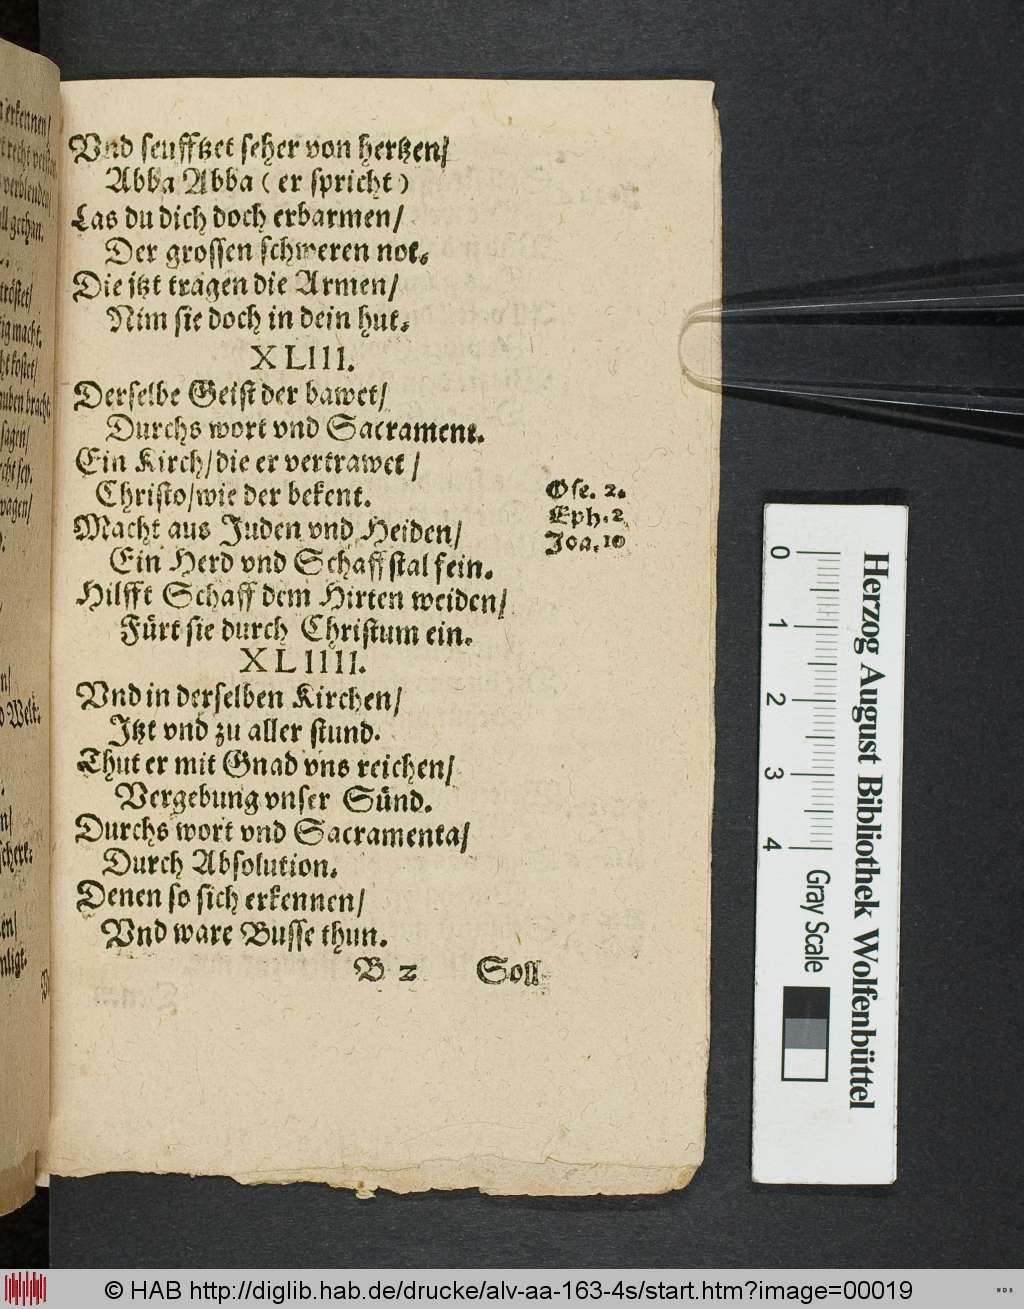 Vnd seufftzet seher von hertzen/
Abba Abba (er spricht)
Las du dich doch erbarmen/
Der grossen schweren not.
Die jtzt tragen die Armen/
Nim sie doch in dein hut.
XLIII.
Derselbe Geist der bawet/
Durchs wort vnd Sacrament.
Ein Kirch/die er vertrawet/
Christo/wie der bekent.
Ose. 2.
Eph. 2
Joa. 10
Macht aus Juden vnd Heiden/
Ein Herd vnd Schaffstal fein.
Hilfft Schaff dem Hirten weiden/
Fürt sie durch Christum ein.
XLIIII.
Vnd in derselben Kirchen/
Jtzt vnd zu aller stund.
Thut er mit Gnad vns reichen/
Vergebung vnser Sünd.
Durchs wort vnd Sacramenta/
Durch Absolution.
Denen so sich erkennen/
Vnd ware Busse thun.
B 2 Soll
erkennen/
verblenden/
gethan.
macht.
kostet/
bracht.
sagen/
sey.
Welt.
0 1 2 3 4
Gray Scale
Herzog August Bibliothek Wolfenbüttel
© HAB http://diglib.hab.de/drucke/alv-aa-163-4s/start.htm?image=00019